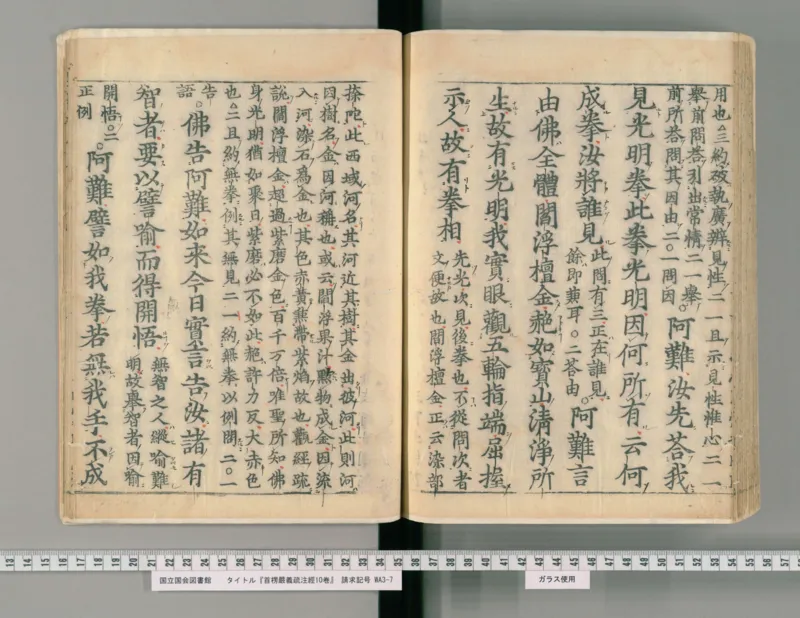 用也△三約破執廣辨見性二一且示見性惟心二一
舉前問荅引出常情二一舉
前所荅問其因由二〇一問因。阿難汝先荅我
見光明拳此拳光明因何所有云何
成拳汝將誰見此問有三正在誰見
餘即兼耳。二荅由。阿難言
由佛全體閻浮檀金赩如寶山清淨所
生故有光明我實眼觀五輪指端屈握
示人故有拳相先光次見後拳也不從問次者
文便故也閻浮檀金正云染部
捺陀此西域河名其河近其樹其金出彼河此則河
因樹名金因河稱也或云閻浮果汁點物成金因流
入河染石爲金也其色赤黃兼帶紫焰故也觀經疏
說閻浮檀金超過紫磨金色百千万倍唯聖所知佛
身光明猶如聚日紫磨必不如此赩許力反大赤色
也△二且約無拳例其無見二一約無拳以例問二〇一
告
語。佛告阿難如來今日實言告汝諸有
智者要以譬喻而得開悟無智之人縱喻難
明故舉智者因喻
開悟。二
正例。阿難譬如我拳若無我手不成
13 14 15 16 17 18 19 20 21 22 23 24 25 26 27 28 29 30 31 32 33 34 35 36 37 38 39 40 41 42 43 44 45 46 47 48 49 50 51 52 53 54 55 56 57
国立国会図書館 タイトル『首楞嚴義疏注經10巻』 請求記号 WA3-7
ガラス使用